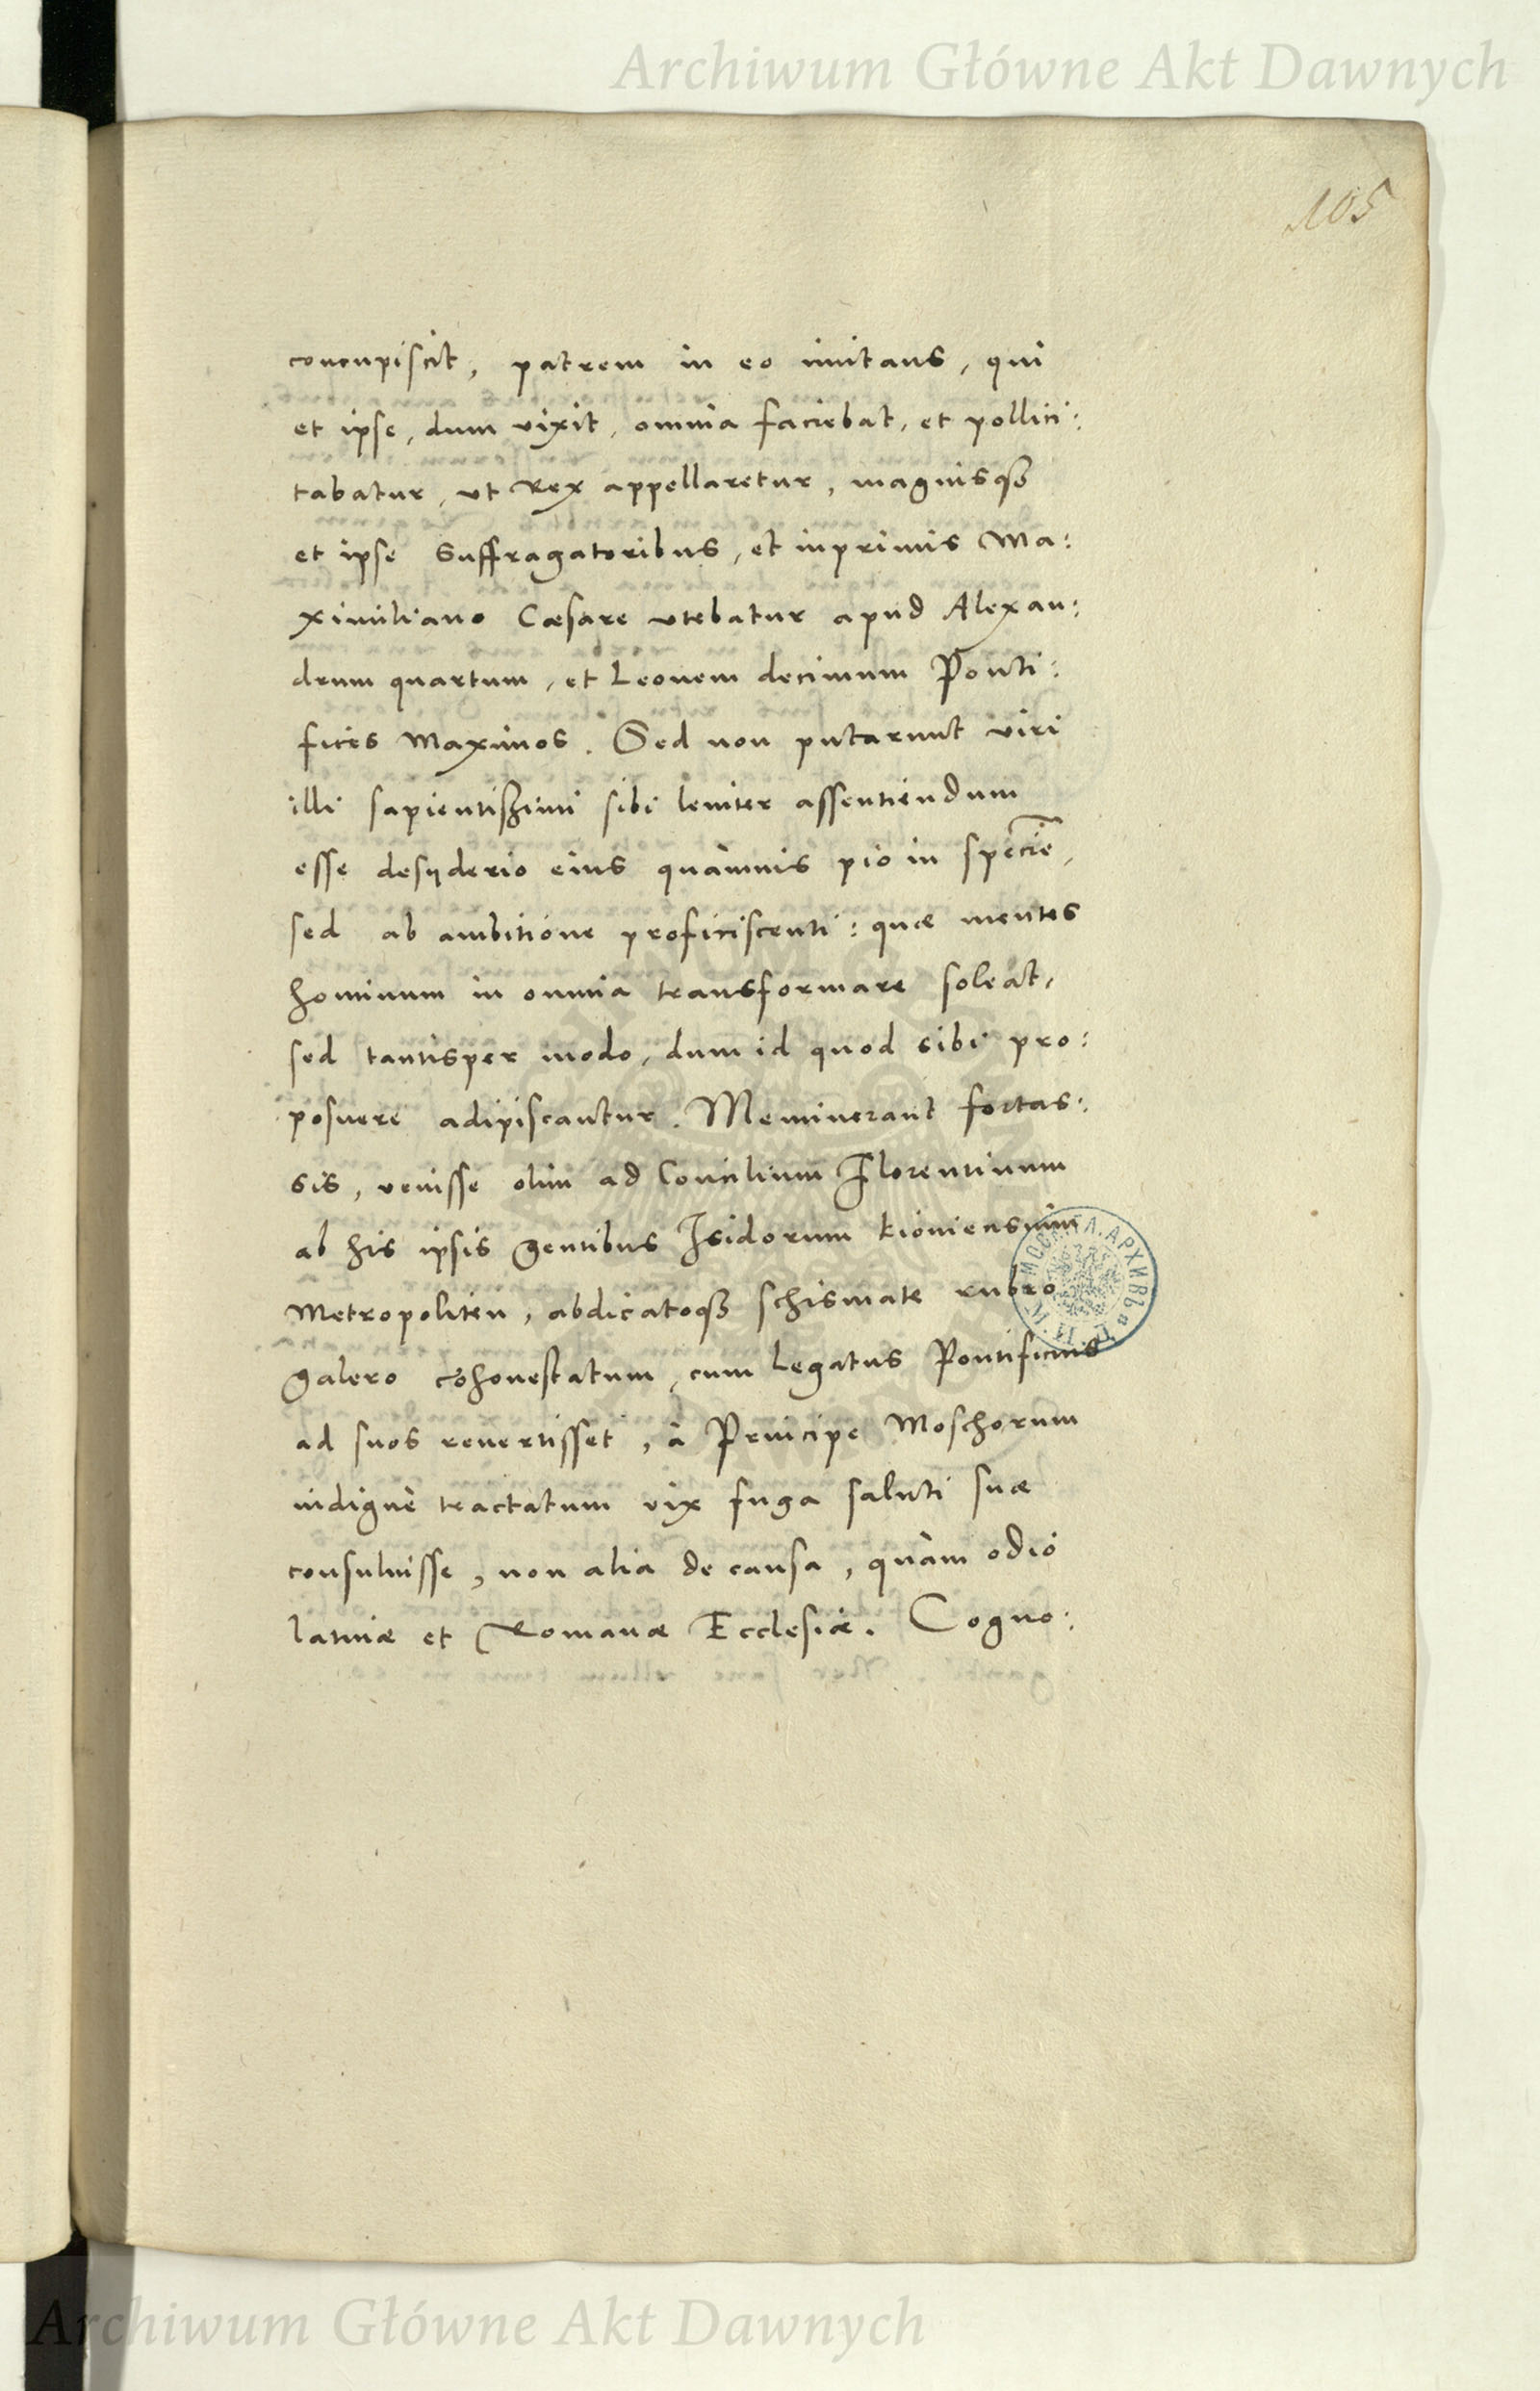 Archiwum Główne Akt Dawnych
105
concupiscit, patrem in eo imitans, qui
et ipse, dum vixit, omnia faciebat, et pollici:
tabatur, ut Rex appellaretur, magnisq3
et ipse suffragatoribus, et inprimis Ma:
ximiliano Cæsare utebatur apud Alexan:
drum quartum, et Leonem decimum Ponti:
fices Maximos. Sed non putarunt viri
illi sapientissimi sibi leviter assentiendum
esse desyderio eius quàmvis pio in specie,
sed ab ambitione proficiscenti: quæ mentes
hominum in omnia transformare soleat,
sed tantisper modo, dum id quod sibi pro:
posuere adipiscantur. Meminerant fortas:
sis, venisse olim ad Concilium Florentinum
ab his ipsis gentibus Isidorum kioviensium
Metropoliten, abdicatoq3 schismate rubro
galero cohonestatum, cum Legatus Pontificius
ad suos revertisset, à Principe Moschorum
indignè tractatum vix fuga saluti suæ
consuluisse, non alia de causa, quàm odio
latinæ et Romanæ Ecclesiæ. Cogno:
Archiwum Główne Akt Dawnych